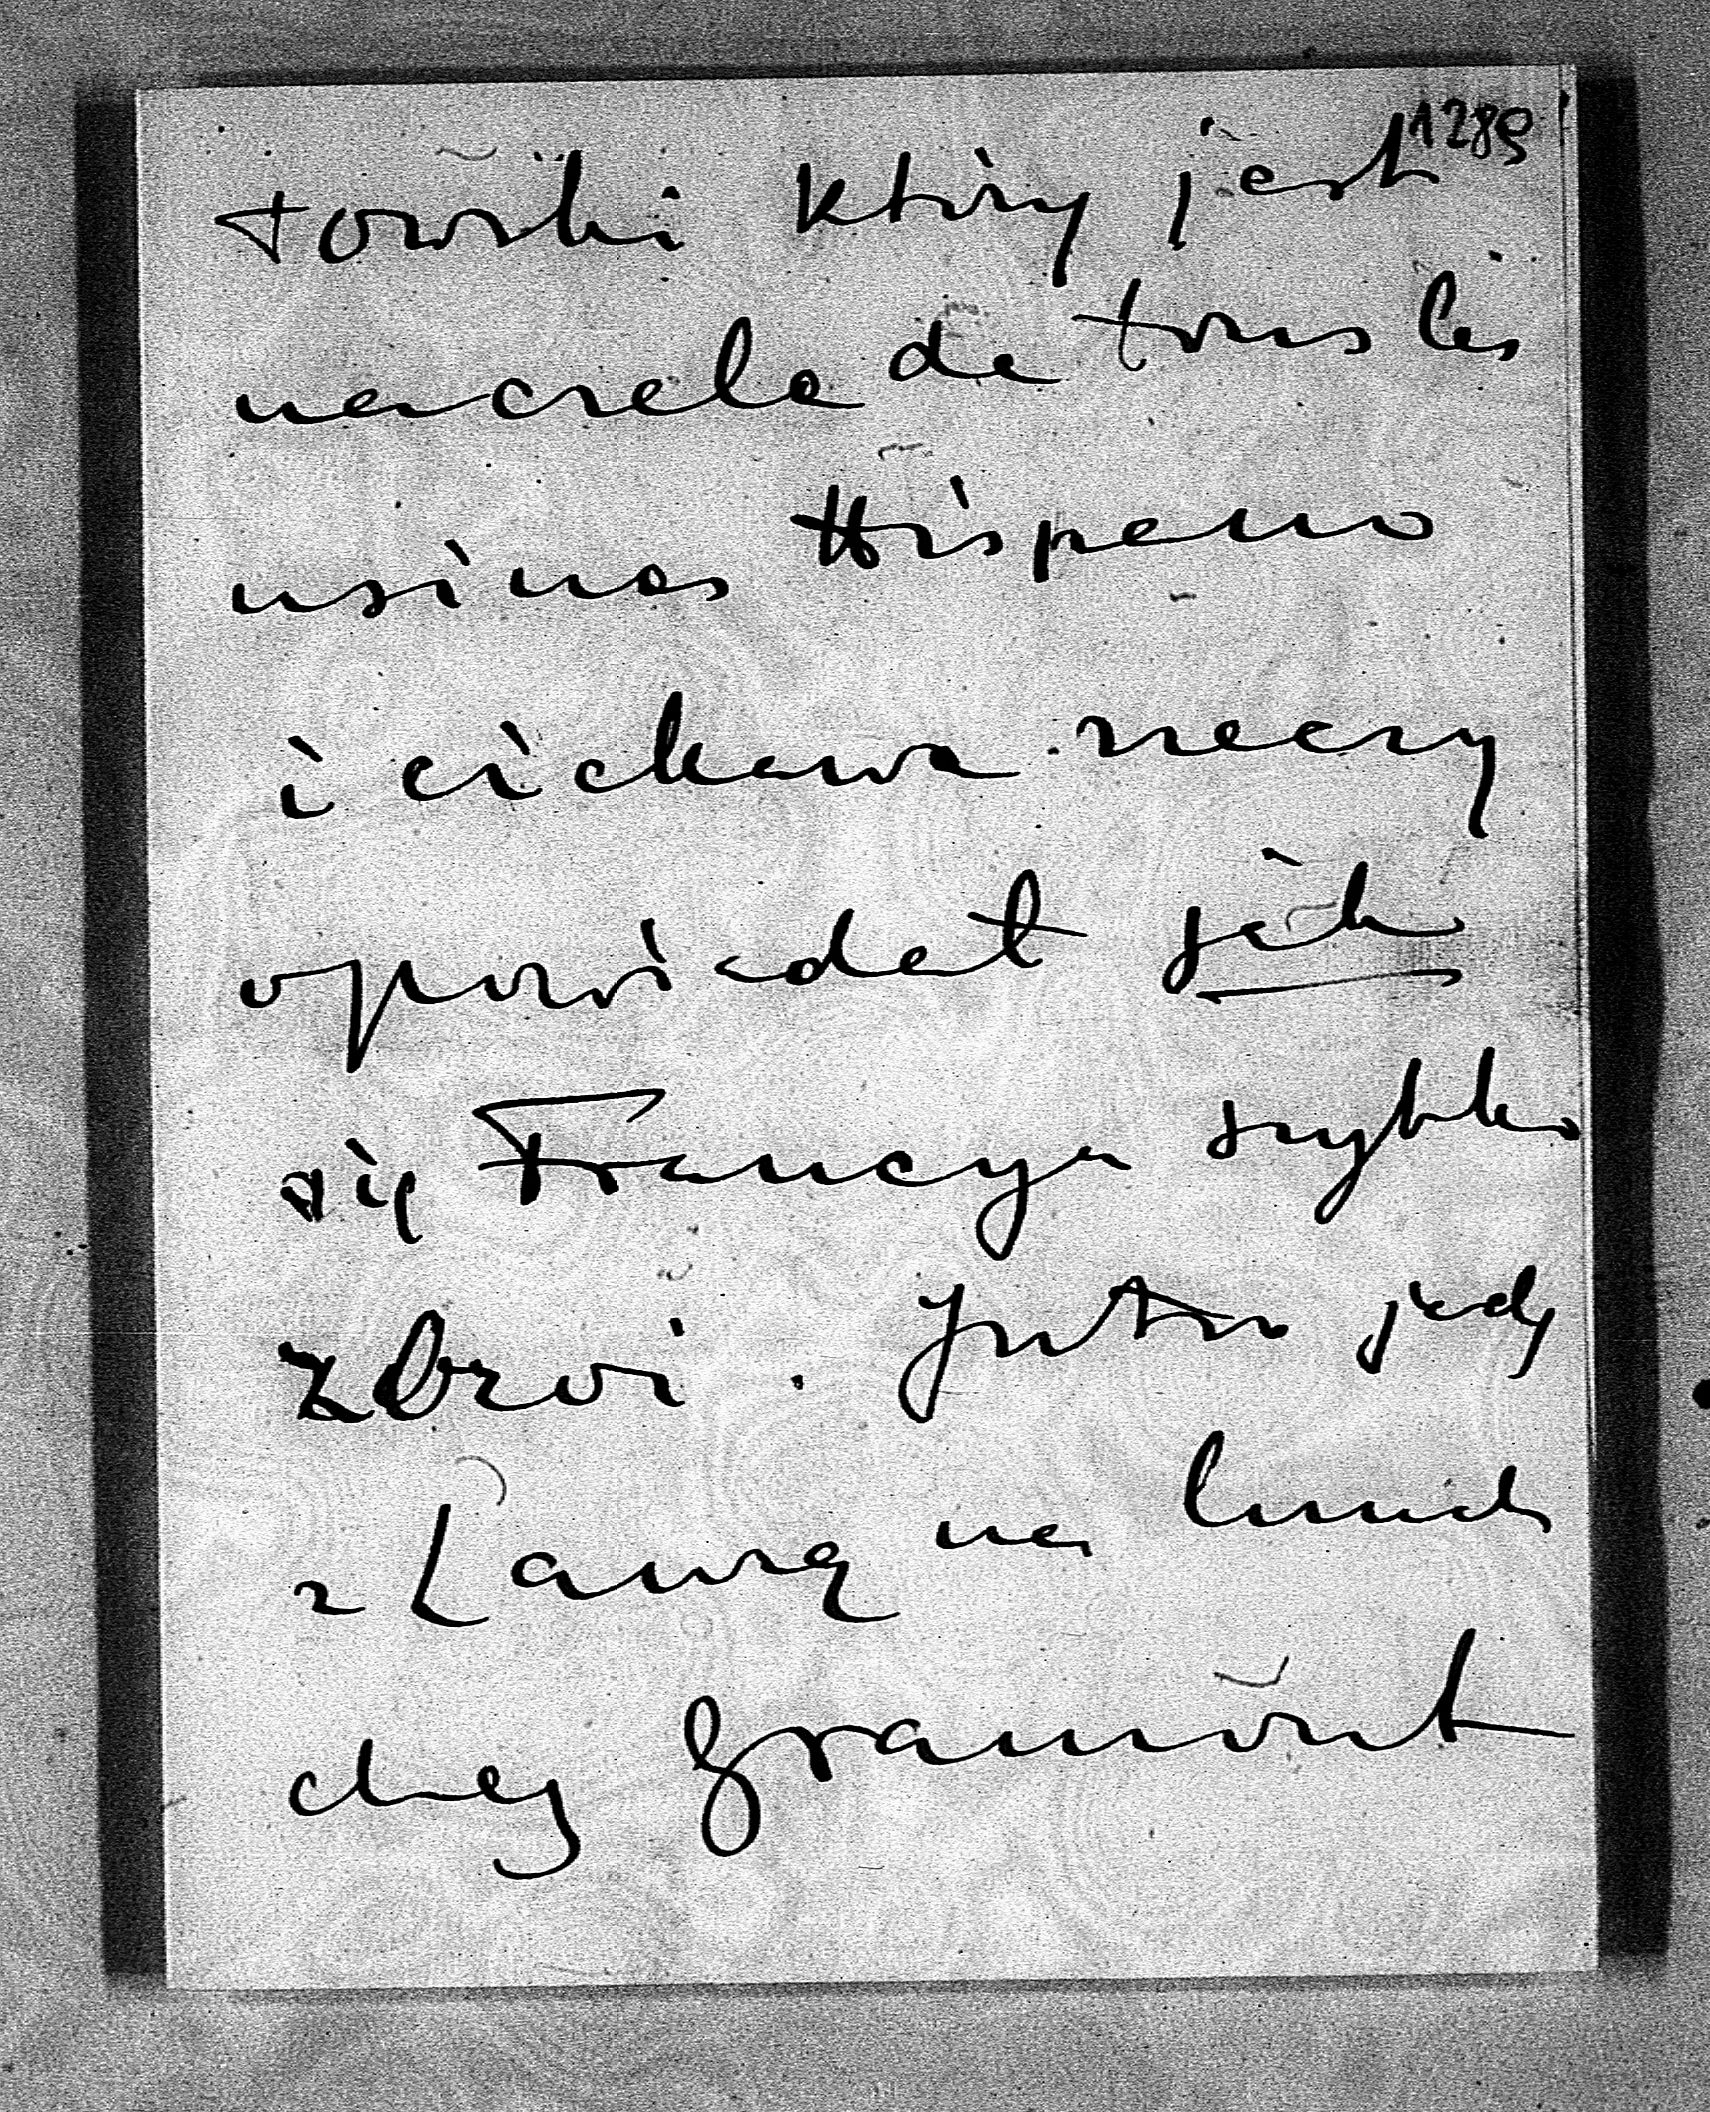 1289
towski który jest
na czele de tous les
usines Hispano
i ciekawe rzeczy
opowiadał jak
się Francya szybko
zbroi. Jutro jadę
z Laurą na lunch
chez Gramont